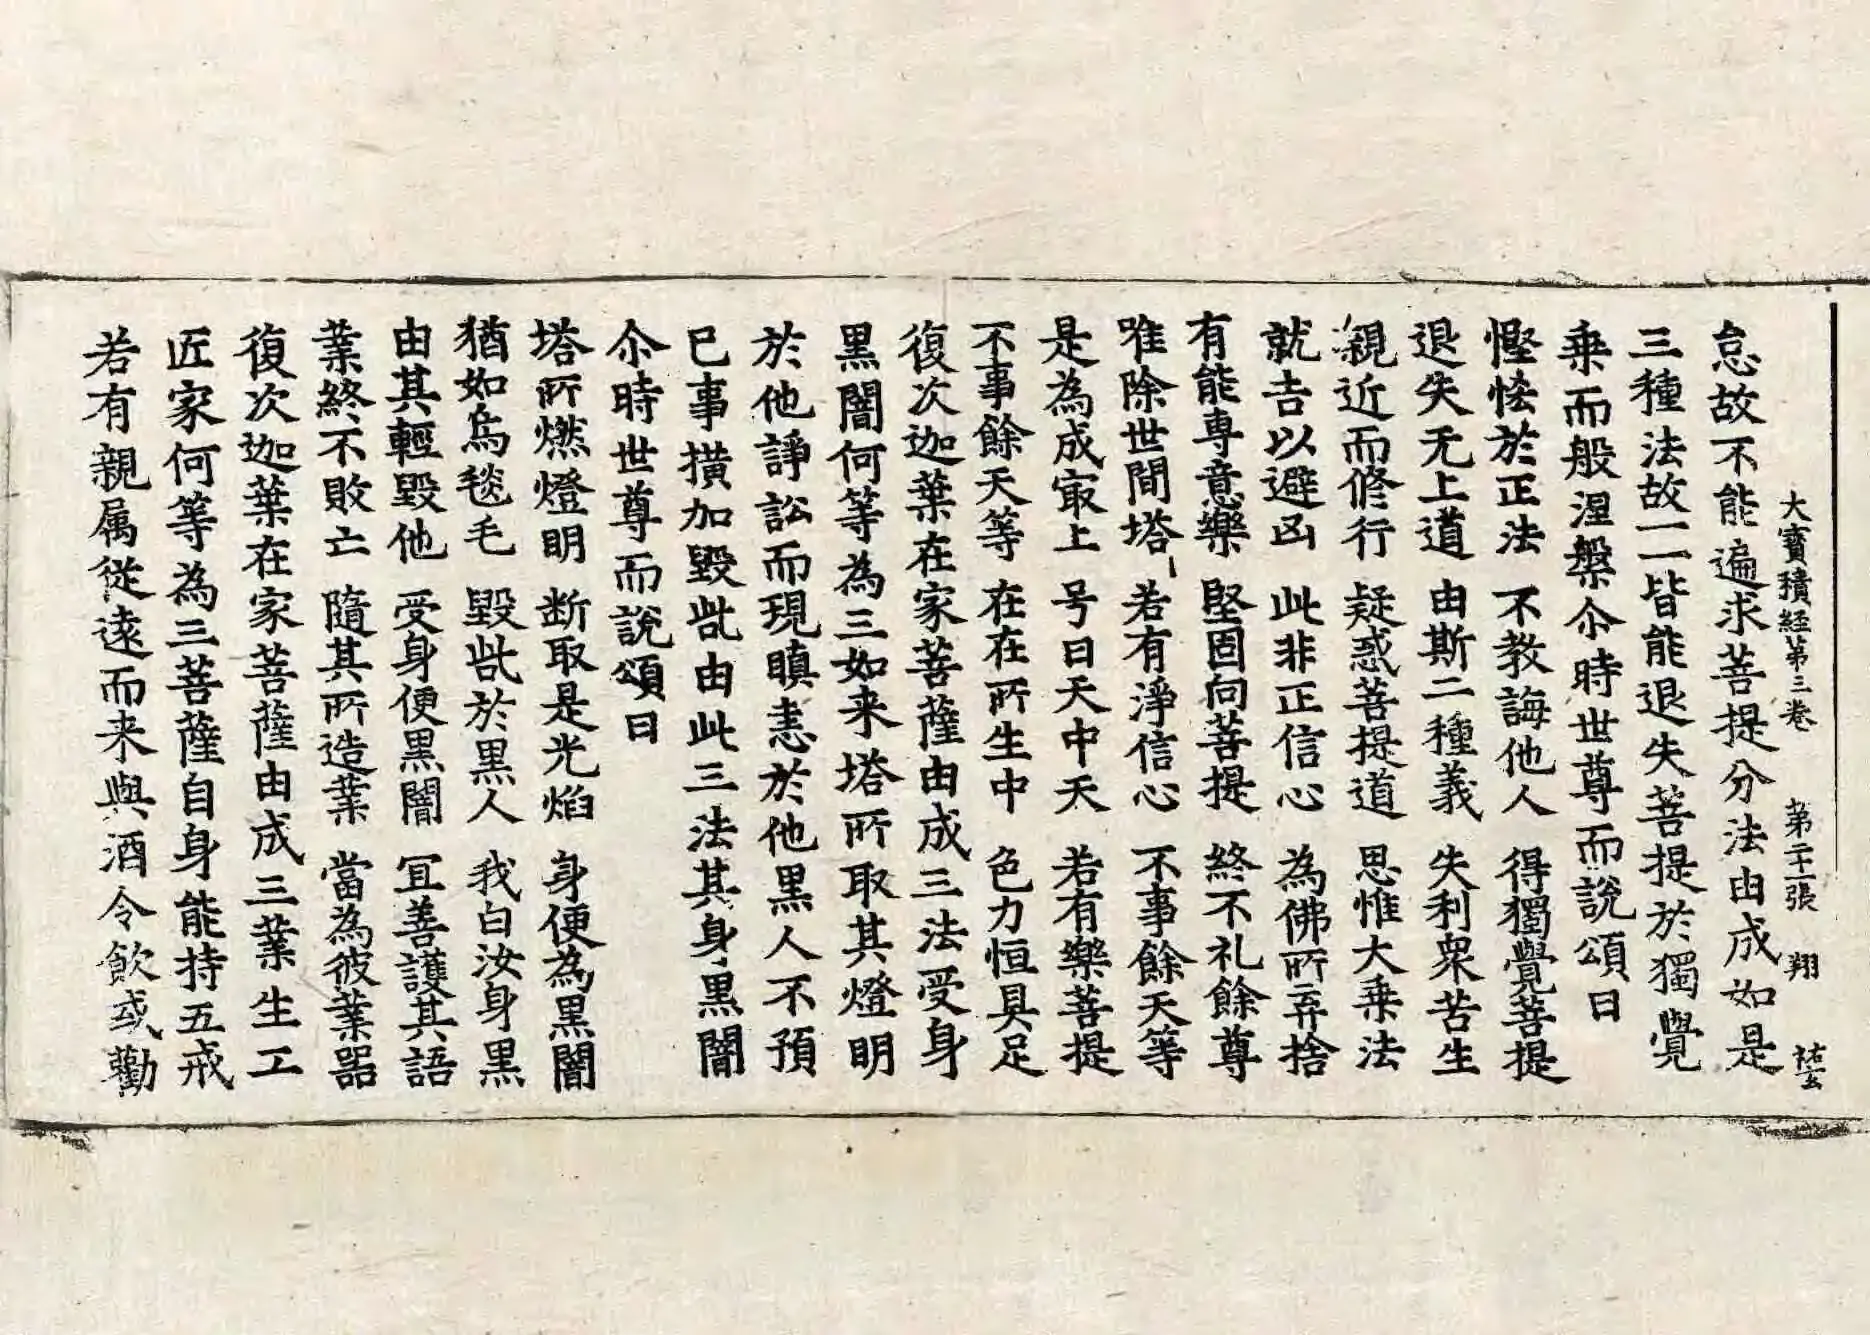 大寶積經第三卷 第二十一張 翔
怠故不能遍求菩提分法由成如是
三種法故一一皆能退失菩提於獨覺
乘而般涅槃尒時世尊而說頌曰
慳悋於正法 不教誨他人 得獨覺菩提
退失无上道 由斯二種義 失利衆苦生
親近而修行 疑惑菩提道 思惟大乘法
就吉以避凶 此非正信心 為佛所弃捨
有能專意樂 堅固向菩提 終不礼餘尊
唯除世間塔 若有淨信心 不事餘天等
是為成冣上 号曰天中天 若有樂菩提
不事餘天等 在在所生中 色力恒具足
復次迦葉在家菩薩由成三法受身
黑闇何等為三如来塔所取其燈明
於他諍訟而現瞋恚於他黑人不預
已事橫加毀呰由此三法其身黑闇
尒時世尊而說頌曰
塔所燃燈明 断取是光焰 身便為黑闇
猶如烏毯毛 毀呰於黑人 我白汝身黑
由其輕毀他 受身便黑闇 冝善護其語
業終不敗亡 隨其所造業 當為彼業器
復次迦葉在家菩薩由成三業生工
匠家何等為三菩薩自身能持五戒
若有親属從遠而来與酒令飲或勸